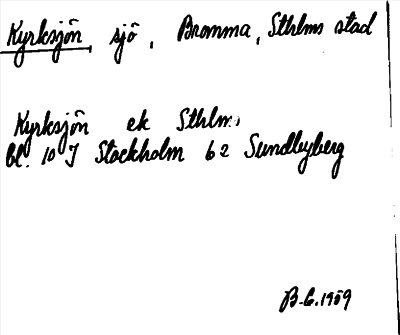 Kyrksjön, sjö, Bromma, Sthlms stad
Kyrksjön ek Sthlm,
bl. 10 I Stockholm 62 Sundbyberg
B.G. 1959